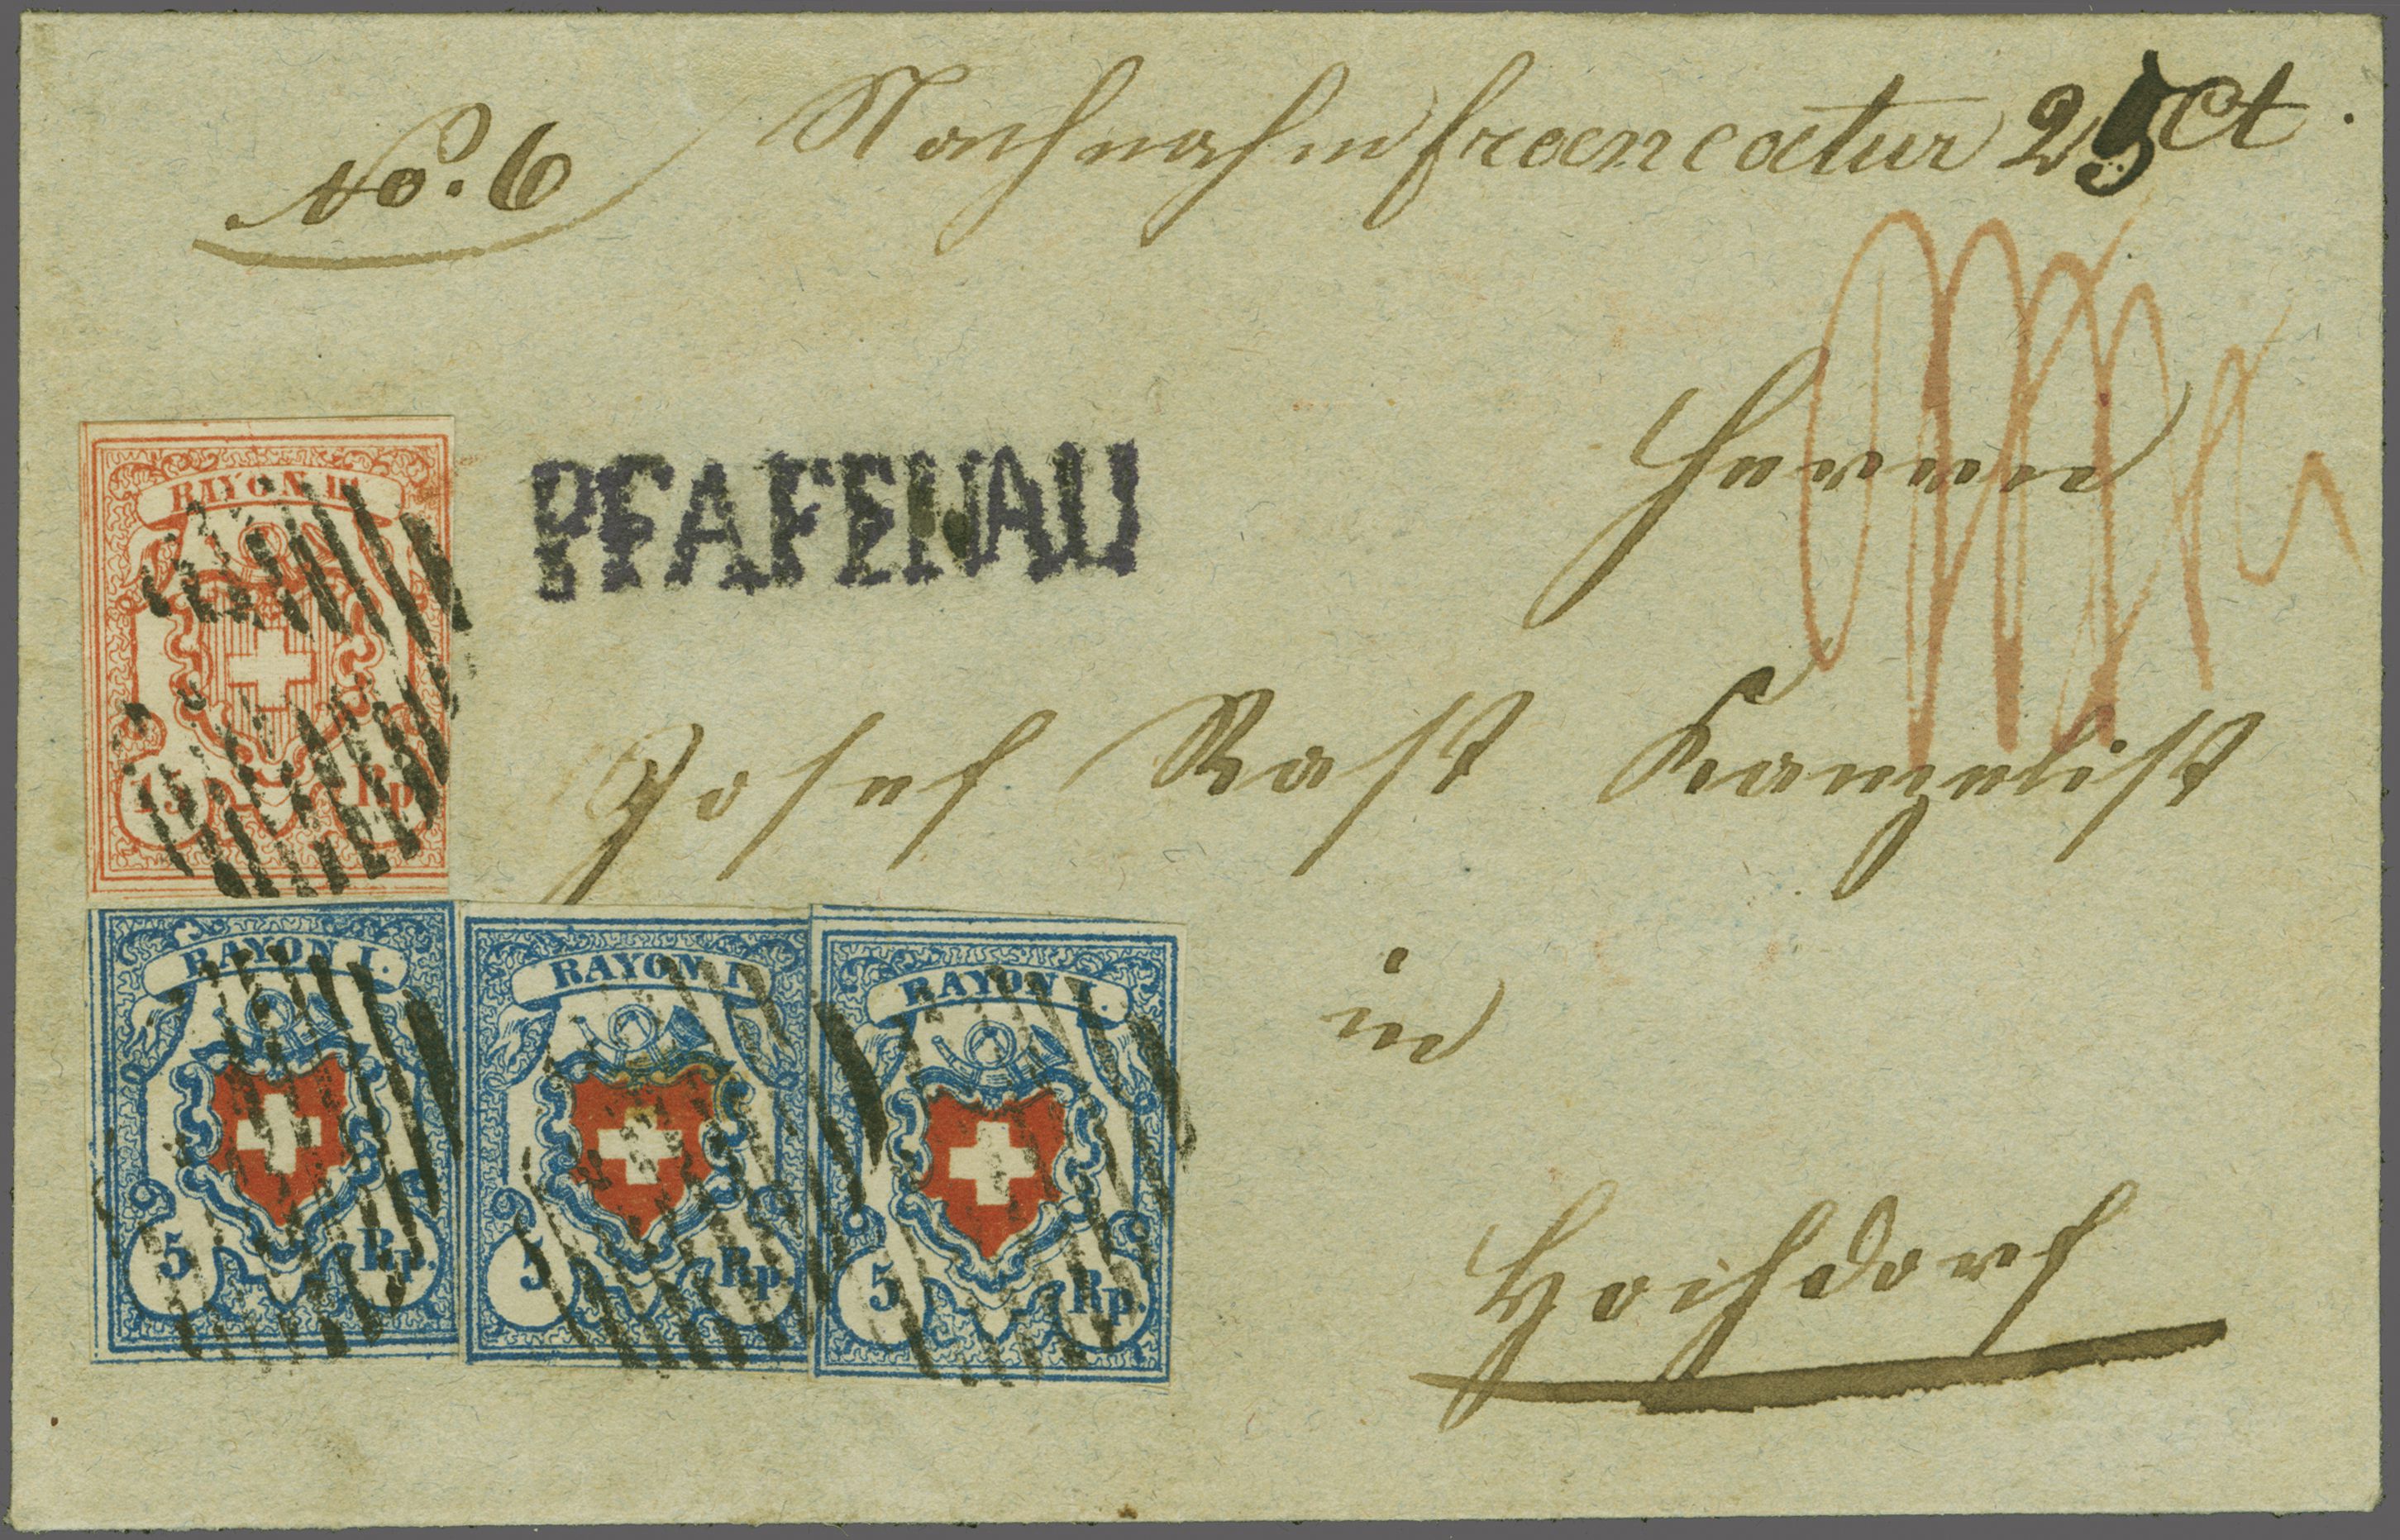 No. 6 Nachnahm francatur 25 Ct.
PFAFENAU
Herrn
Josef Rast Kanzelist
in
Hochdorf
RAYON III
15 Rp.
RAYON I.
5 Rp.
RAYON I.
5 Rp.
RAYON I.
5 Rp.